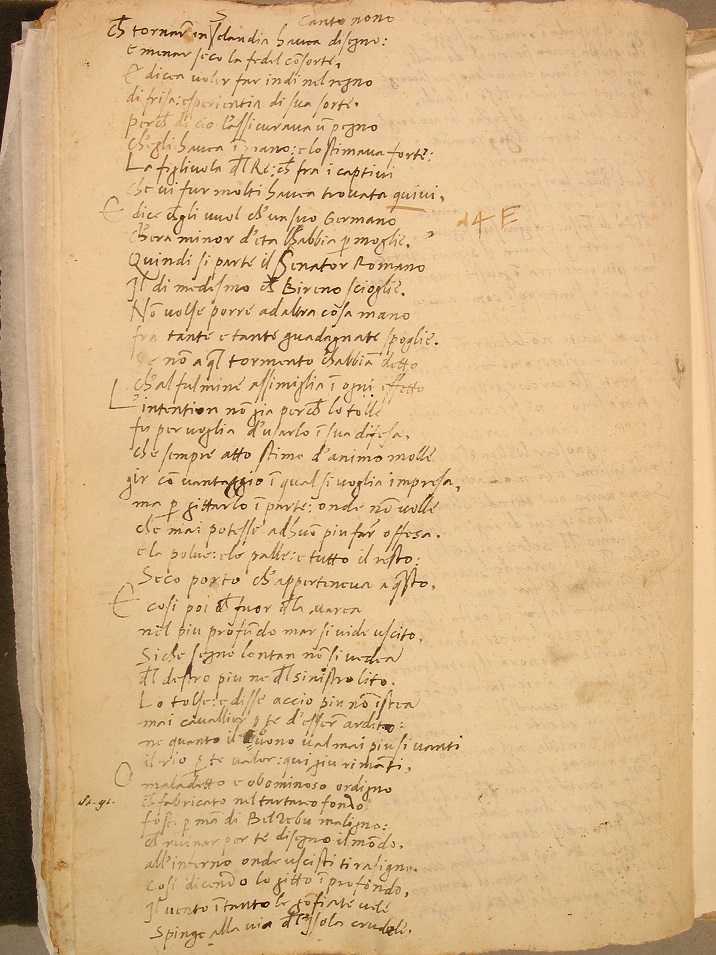 Canto nono
ch̃ tornar in Selandia havea disegno:
e menar seco la fedel cõsorte,
E dicea voler far indi nel regno
di frisa: esperientia di sua sorte.
perch̃ di cio l'assicurava ũ pegno
ch'egli havea ĩ mano: e lo stimava forte:
La figliuola d̃l Re: ch̃ fra i captivi
che vi fur molti havea trovata quivi.
E dice ch'egli vuol ch'un suo Germano
ch'era minor d'eta l'habbia p̱ moglie.
14 E
Quindi si parte il Senator Romano
Il di medesimo ch̃ Bireno scioglie.
Nõ volse porre ad altra cosa mano
fra tante e tante guadagnate spoglie.
Se nõ a q̃l tormento c'habbiã detto
ch'al fulmine assimiglia ĩ ogni effetto
L'intention nõ gia perch̃ lo tolle
fu per voglia d'usarlo ĩ sua difesa,
che sempre atto stimo d'animo molle
gir cõ vantaggio ĩ qual si voglia impresa,
ma p̱ gittarlo ĩ parte: onde nõ volle
che mai potesse ad huõ piu far offesa.
e la polve: e le palle: e tutto il resto:
Seco porto ch'apperteneva a q̃sto,
E cosi poi ch̃ fuor d̃la marea
nel piu profũdo mar si vide uscito,
Siche segno lontan nõ si vedea
d̃l destro piu ne d̃l sinistro lito.
Lo tolse: e disse accio piu nõ istea
mai cavallier p̱ te d'esser ardito:
ne quanto il buono val mai piu si vanti
il rio p̱ te valer: qui giu rimãti,
O maladetto e abominoso ordigno
st. 91.
ch̃ fabricato nel tartareo fondo
fosti p̱ mã di Belzebu maligno:
ch̃ ruinar per te disegno il mõdo,
all'inferno onde uscisti ti rasigno.
Cosi dicendo lo gitto ĩ profondo,
Il vento ĩtanto le gõfiate vele
Spinge alla via d̃l'Isola crudele.